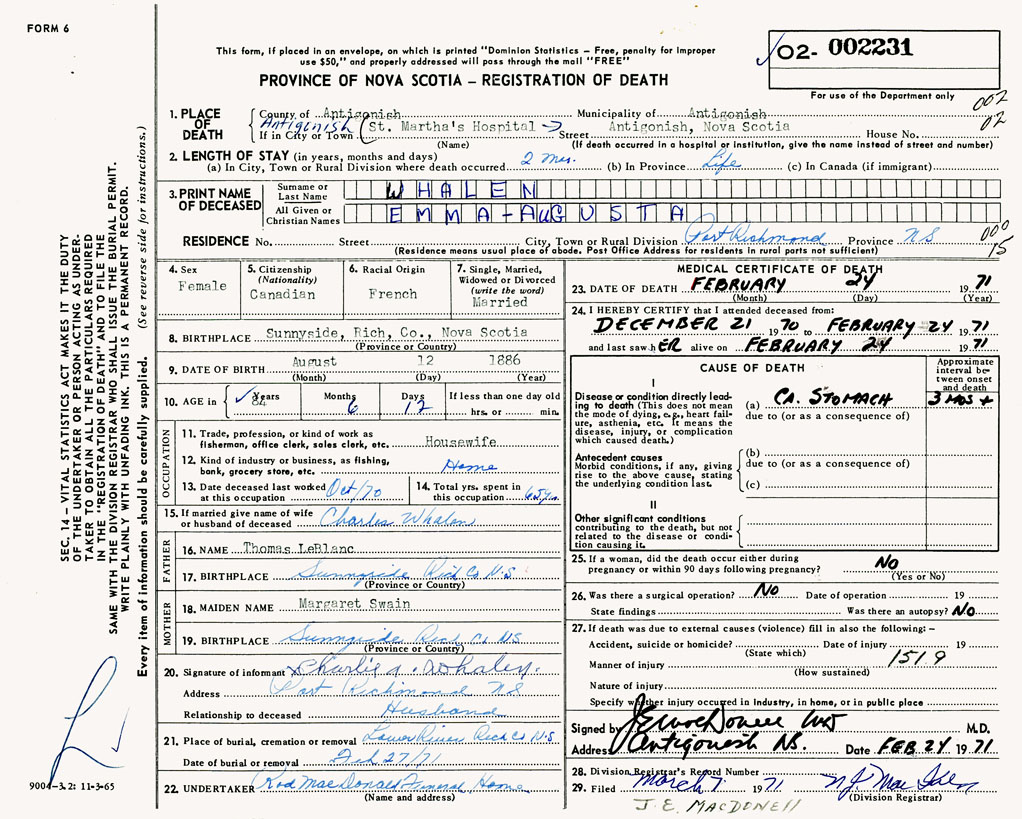 FORM 6
This form, if placed in an envelope, on which is printed "Dominion Statistics – Free, penalty for improper
use $50," and properly addressed will pass through the mail "FREE"
PROVINCE OF NOVA SCOTIA – REGISTRATION OF DEATH
02- 002231
For use of the Department only
002
02
1. PLACE OF DEATH
County of Antigonish Municipality of Antigonish
Antigonish
If in City or Town (St. Martha's Hospital → Street Antigonish, Nova Scotia House No.
(Name) (If death occurred in a hospital or institution, give the name instead of street and number)
2. LENGTH OF STAY (in years, months and days)
(a) In City, Town or Rural Division where death occurred 2 mos. (b) In Province Life (c) In Canada (if immigrant)
3. PRINT NAME OF DECEASED
Surname or Last Name WHALEN
All Given or Christian Names EMMA-AUGUSTA
RESIDENCE No. Street City, Town or Rural Division Port Richmond Province NS
000
15
(Residence means usual place of abode. Post Office Address for residents in rural parts not sufficient)
4. Sex
Female
5. Citizenship
(Nationality)
Canadian
6. Racial Origin
French
7. Single, Married,
Widowed or Divorced
(write the word)
Married
8. BIRTHPLACE Sunnyside, Rich, Co., Nova Scotia
(Province or Country)
9. DATE OF BIRTH August 12 1886
(Month) (Day) (Year)
10. AGE in Years 84 Months 6 Days 12 If less than one day old
hrs. or min.
OCCUPATION
11. Trade, profession, or kind of work as
fisherman, office clerk, sales clerk, etc. Housewife
12. Kind of industry or business, as fishing,
bank, grocery store, etc. Home
13. Date deceased last worked
at this occupation Oct/70
14. Total yrs. spent in
this occupation 65 yrs
15. If married give name of wife
or husband of deceased Charles Whalen
FATHER
16. NAME Thomas LeBlanc
17. BIRTHPLACE Sunnyside Rich Co N.S
(Province or Country)
MOTHER
18. MAIDEN NAME Margaret Swain
19. BIRTHPLACE Sunnyside Rich Co NS
(Province or Country)
20. Signature of informant Charlie A. Whalen.
Address Port Richmond NS
Relationship to deceased Husband
21. Place of burial, cremation or removal Lower River Rich Co N.S
Date of burial or removal Feb 27/71
22. UNDERTAKER Rod MacDonald Funeral Home
(Name and address)
MEDICAL CERTIFICATE OF DEATH
23. DATE OF DEATH FEBRUARY 24 1971
(Month) (Day) (Year)
24. I HEREBY CERTIFY that I attended deceased from:
DECEMBER 21 1970 to FEBRUARY 24 1971
and last saw hER alive on FEBRUARY 24 1971
CAUSE OF DEATH
Approximate
interval be-
tween onset
and death
I
Disease or condition directly lead-
ing to death (This does not mean
the mode of dying, e.g., heart fail-
ure, asthenia, etc. It means the
disease, injury, or complication
which caused death.)
(a) CA. STOMACH 3 MOS +
due to (or as a consequence of)
Antecedent causes
Morbid conditions, if any, giving
rise to the above cause, stating
the underlying condition last.
(b)
due to (or as a consequence of)
(c)
II
Other significant conditions
contributing to the death, but not
related to the disease or condi-
tion causing it.
25. If a woman, did the death occur either during
pregnancy or within 90 days following pregnancy? No
(Yes or No)
26. Was there a surgical operation? No Date of operation 19
State findings Was there an autopsy? No
27. If death was due to external causes (violence) fill in also the following: –
Accident, suicide or homicide? Date of injury 19
(State which)
Manner of injury 151.9
(How sustained)
Nature of injury
Specify whether injury occurred in Industry, in home, or in public place
Signed by M.D.
Address Antigonish NS. Date FEB 24 1971
28. Division Registrar's Record Number
29. Filed March 7 1971
(Division Registrar)
J. E. MACDONELL
SEC. 14 – VITAL STATISTICS ACT MAKES IT THE DUTY
OF THE UNDERTAKER OR PERSON ACTING AS UNDER-
TAKER TO OBTAIN ALL THE PARTICULARS REQUIRED
IN THE "REGISTRATION OF DEATH" AND TO FILE THE
SAME WITH THE DIVISION REGISTRAR WHO SHALL ISSUE THE BURIAL PERMIT.
WRITE PLAINLY WITH UNFADING INK. THIS IS A PERMANENT RECORD.
Every item of information should be carefully supplied. (See reverse side for instructions.)
9004-3.2: 11-3-65